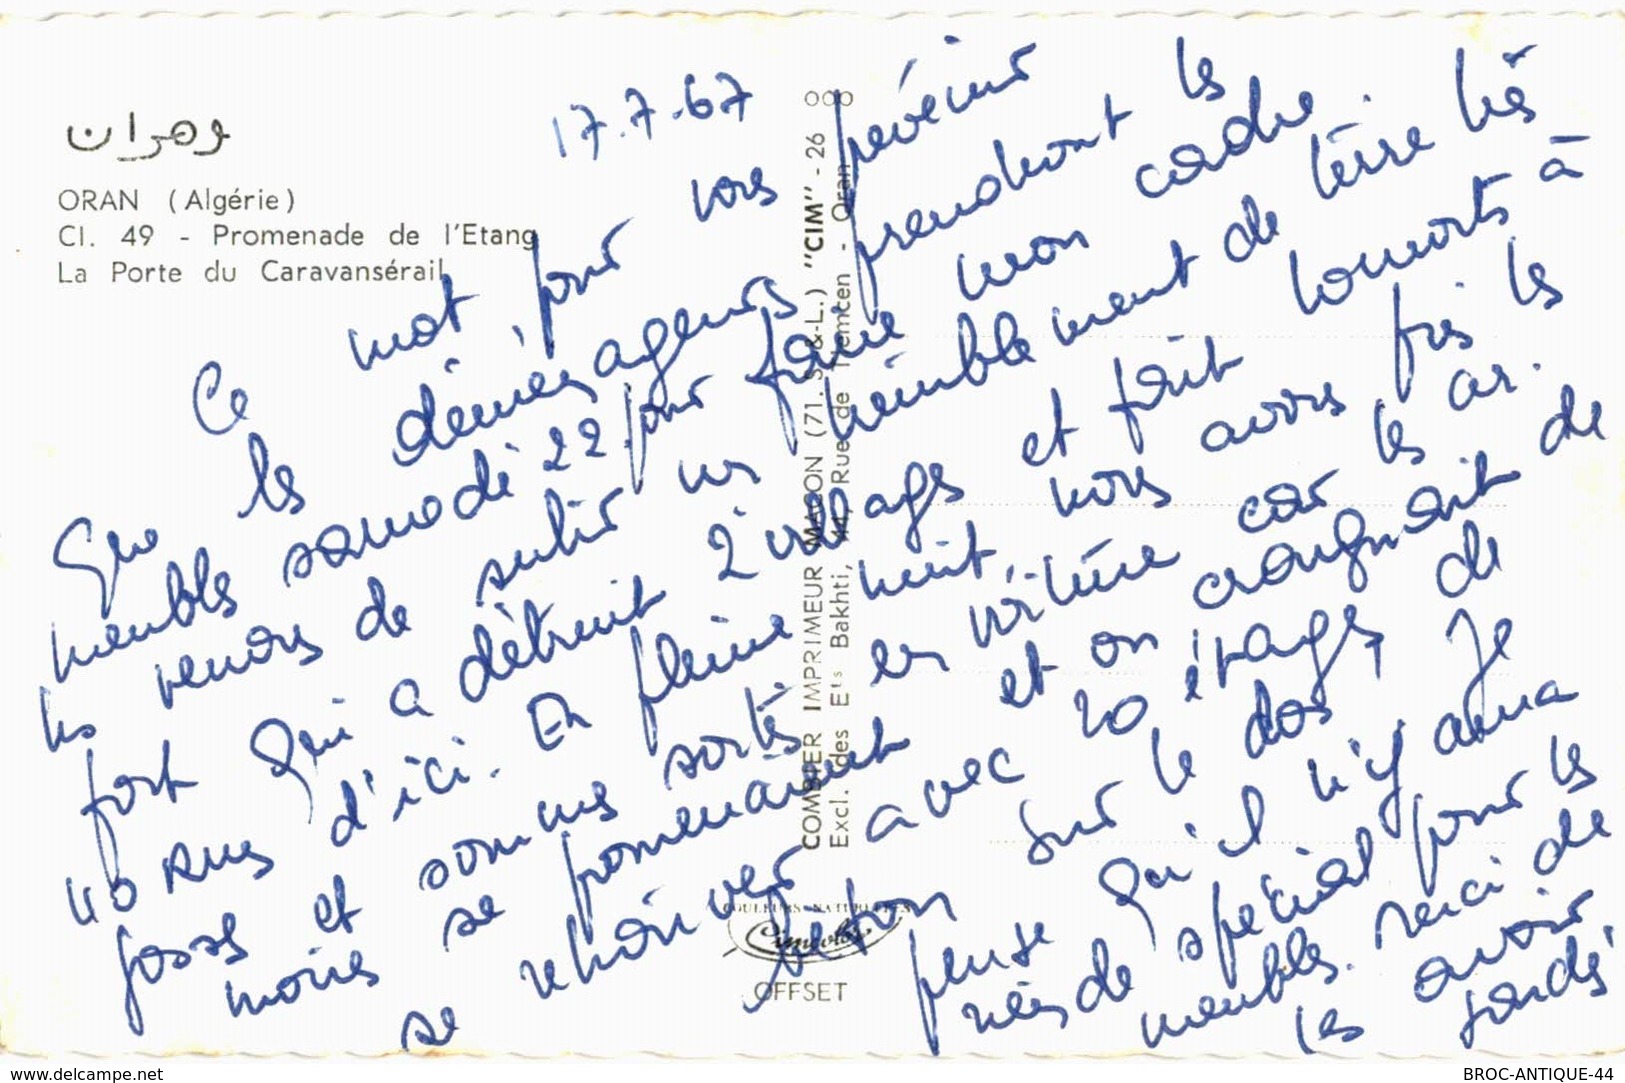 وهران
ORAN (Algérie)
Cl. 49 - Promenade de l'Etang
La Porte du Caravansérail
17.7.67
COMBIER IMPRIMEUR MACON (71. S.-&-L.) "CIM" - 26
Excl. des Ets Bakhti, 44, Rue de Tlemcen - Oran
Ce mot, pour vous prévenir
que les déménageurs prendront les
meubles samedi 22 pour faire mon cadre.
Ns venons de subir un tremblement de terre très
fort qui a détruit 2 villages et fait morts à
40 kms d'ici. En pleine nuit, nous avons pris les
gosses et sommes sortis en voiture car les
moins se promenaient et on craignait de
se retrouver avec 20 étages de
béton sur le dos, Je
pense qu'il n'y aura
rien de spécial pour les
meubles. Merci de
les avoir
gardés
COULEURS NATURELLES
Cimcolor
OFFSET
www.delcampe.net
BROC-ANTIQUE-44